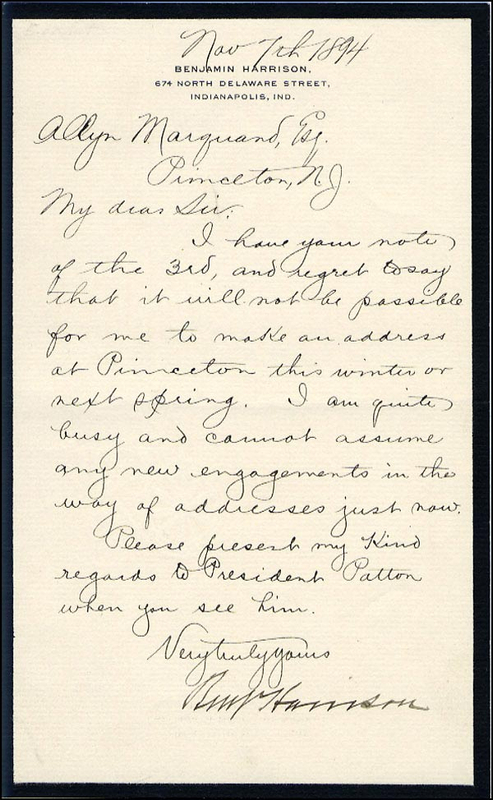 Nov 7th 1894
BENJAMIN HARRISON,
674 NORTH DELAWARE STREET,
INDIANAPOLIS, IND.
Allyn Marquand, Esq.
Princeton, N.J.
My dear Sir:
I have your note
of the 3rd, and regret to say
that it will not be possible
for me to make an address
at Princeton this winter or
next spring. I am quite
busy and cannot assume
any new engagements in the
way of addresses just now.
Please present my kind
regards to President Patton
when you see him.
Very truly yours
Benj Harrison